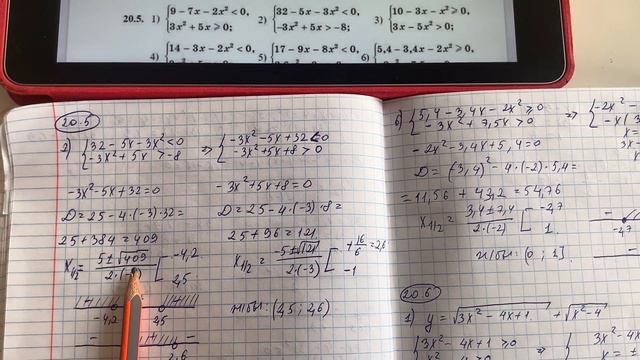 20.5. 1) {9 − 7x − 2x² < 0, 2) {32 − 5x − 3x² < 0, 3) {10 − 3x − x² ⩾ 0,
3x² + 5x ⩾ 0; −3x² + 5x > −8; 3x − 5x² > 0;
4) {14 − 3x − 2x² < 0, 5) {17 − 9x − 8x² < 0, 6) {5,4 − 3,4x − 2x² ⩾ 0,
20.5
2) {32 − 5x − 3x² < 0 ⇒ {−3x² − 5x + 32 < 0
−3x² + 5x > −8 −3x² + 5x + 8 > 0
−3x² − 5x + 32 = 0
D = 25 − 4·(−3)·32 =
25 + 384 = 409
x½ = 5 ± √409 [ −4,2
2·(−3) 2,5
−4,2 2,5
2,6
−3x² + 5x + 8 = 0
D = 25 − 4·(−3)·8 =
25 + 96 = 121
x1/2 = −5 ± √121 [ + 16/6 = 2,6
2·(−3) −1
(2,5 ; 2,6)
6) {5,4 − 3,4x − 2x² ⩾ 0 ⇒ {−2x² −
−3x² + 7,5x > 0 −x(3
3x
−2x² − 3,4x + 5,4 = 0
D = (3,4)² − 4·(−2)·5,4 =
= 11,56 + 43,2 = 54,76
x1/2 = 3,4 ± 7,4 [ −2,7
2·(−2) 1
−2,7
(0 ; 1].
20.6
1) y = √3x² − 4x + 1 + √x² − 4
{3x² − 4x + 1 ⩾ 0 ⇒ {3x² − 4x